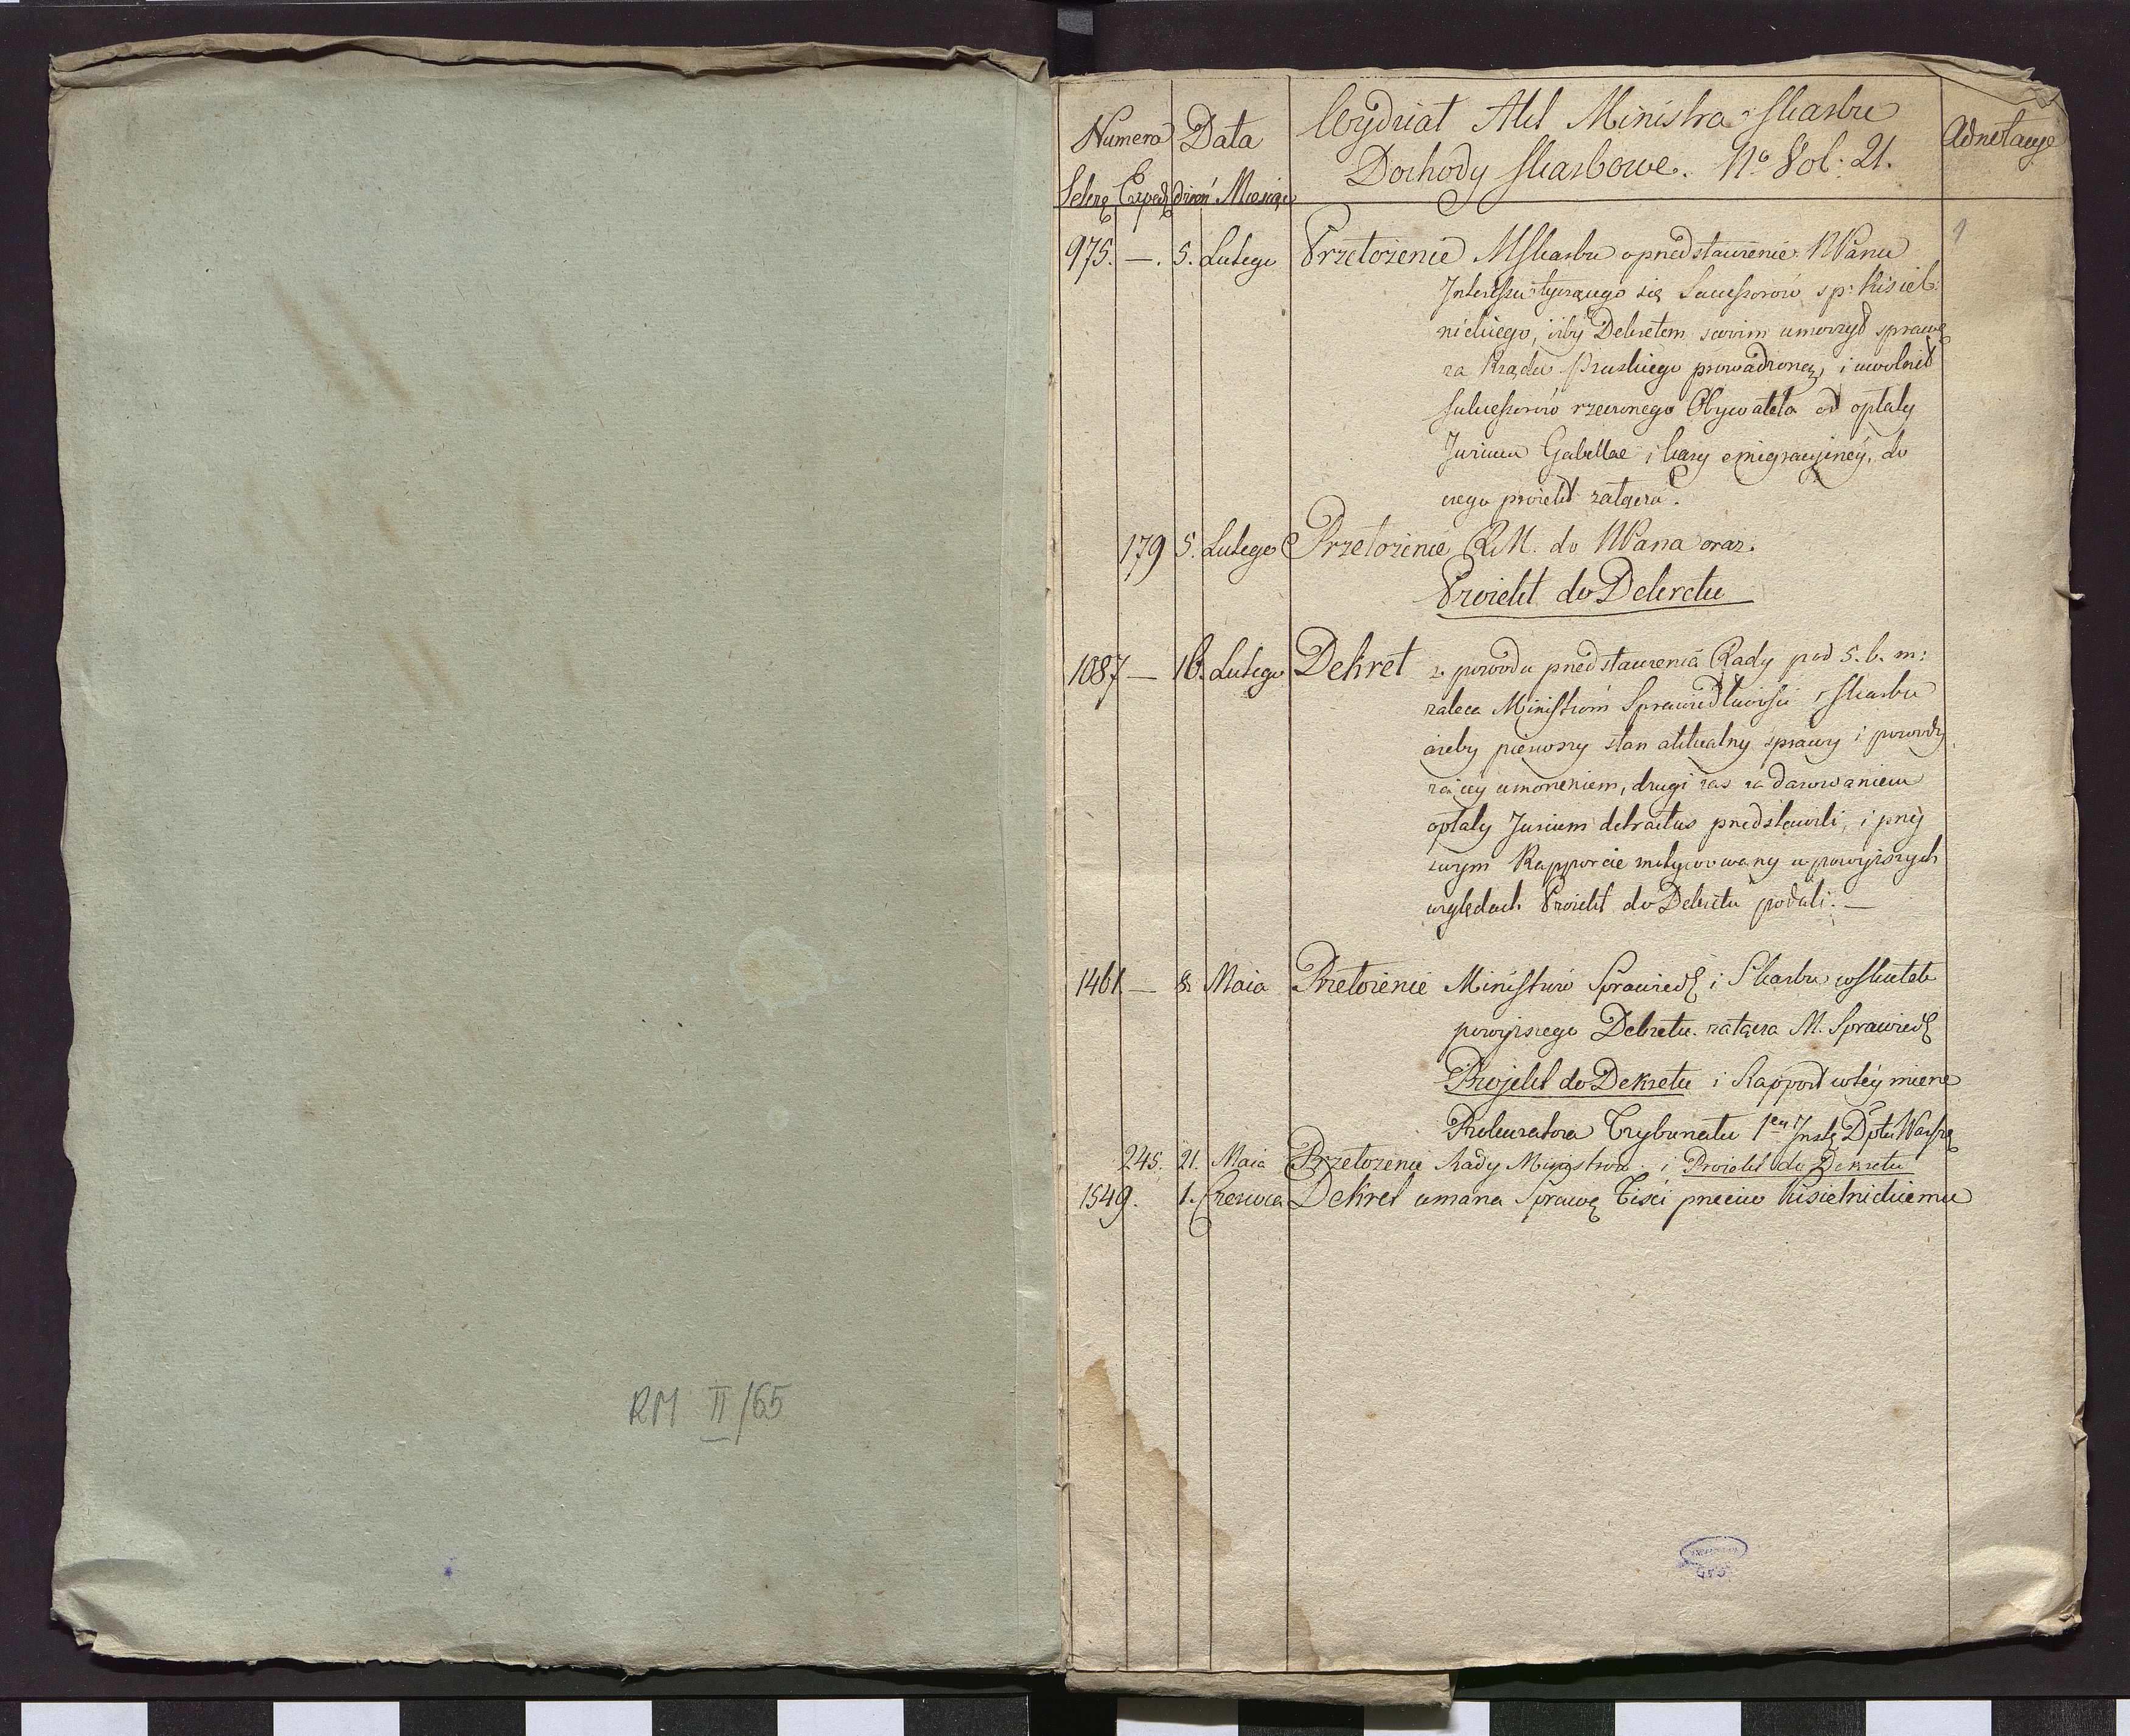 RM II/65
Numera Data Wydział Akt Ministra Skarbu Adnotacye
Dochody Skarbowe. No Vol: 21.
Exped dzień Miesiąc
1
975. — . 5. Lutego Przełożenie MSkarbu o przedstawienie NPanu
Interessu tyczącego się Sukcessorów sp: Kisiel-
nickiego, iżby Dekretem swoim umorzył sprawę
za Rządu Pruskiego prowadzoną, i uwolnił
Sukcessorów rzeczonego Obywatela od opłaty
Jurium Gabellae i kary emigracyiney, do
czego proiekt załącza.
179 5. Lutego Przełożenie R.M. do NPana oraz.
Proiekt do Dekretu
1087 — 16. Lutego Dekret z powodu przedstawienia Rady pod 5. b. m:
zaleca Ministróm Sprawiedliwości i Skarbu
ażeby pierwszy stan aktualny sprawy i powody
za iey umorzeniem, drugi zas za darowaniem
opłaty Jurium detractus przedstawili, i przy
swym Rapporcie motywowany w powyższych
względach Proiekt do Dekretu podali. —
1461 — 8. Maia Przełożenie Ministrów Sprawiedl i Skarbu wskutek
powyższego Dekretu. załącza M. Sprawiedl
Projekt do Dekretu i Rapport w tey mierze
Prokuratora Trybunału 1ey Inst. Dptu Warsz
245. 21. Maia Przełożenie Rady Ministrów. i Proiekt do Dekretu
1549. 1. Czerwca Dekret umarza Sprawę Fisci przeciw Kisielnickiemu